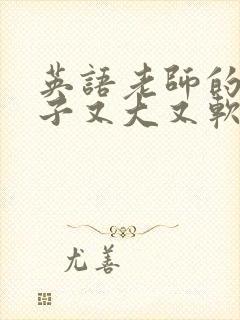 英語老師的
子又大又軟
尤善